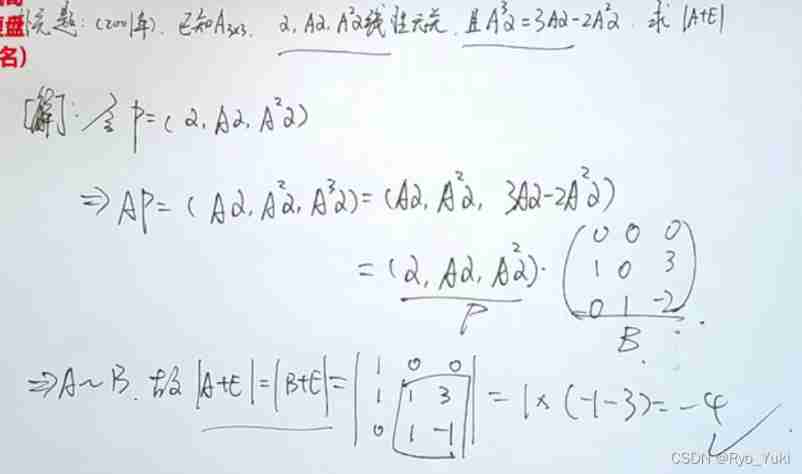 题
盘 补充题: (2001年). 已知A₃ₓ₃. α, Aα, A²α线性无关. 且A³α=3Aα-2A²α. 求 |A+E|
名)
[解]: 令 P=(α, Aα, A²α)
⇒ AP=(Aα, A²α, A³α)=(Aα, A²α, 3Aα-2A²α)
=(α, Aα, A²α)·(0 0 0
1 0 3
0 1 -2)
P B.
⇒A~B. 故 |A+E|=|B+E|=|1 0 0
1 1 3
0 1 -1| = 1×(-1-3)=-4
CSDN @Ryo_Yuki